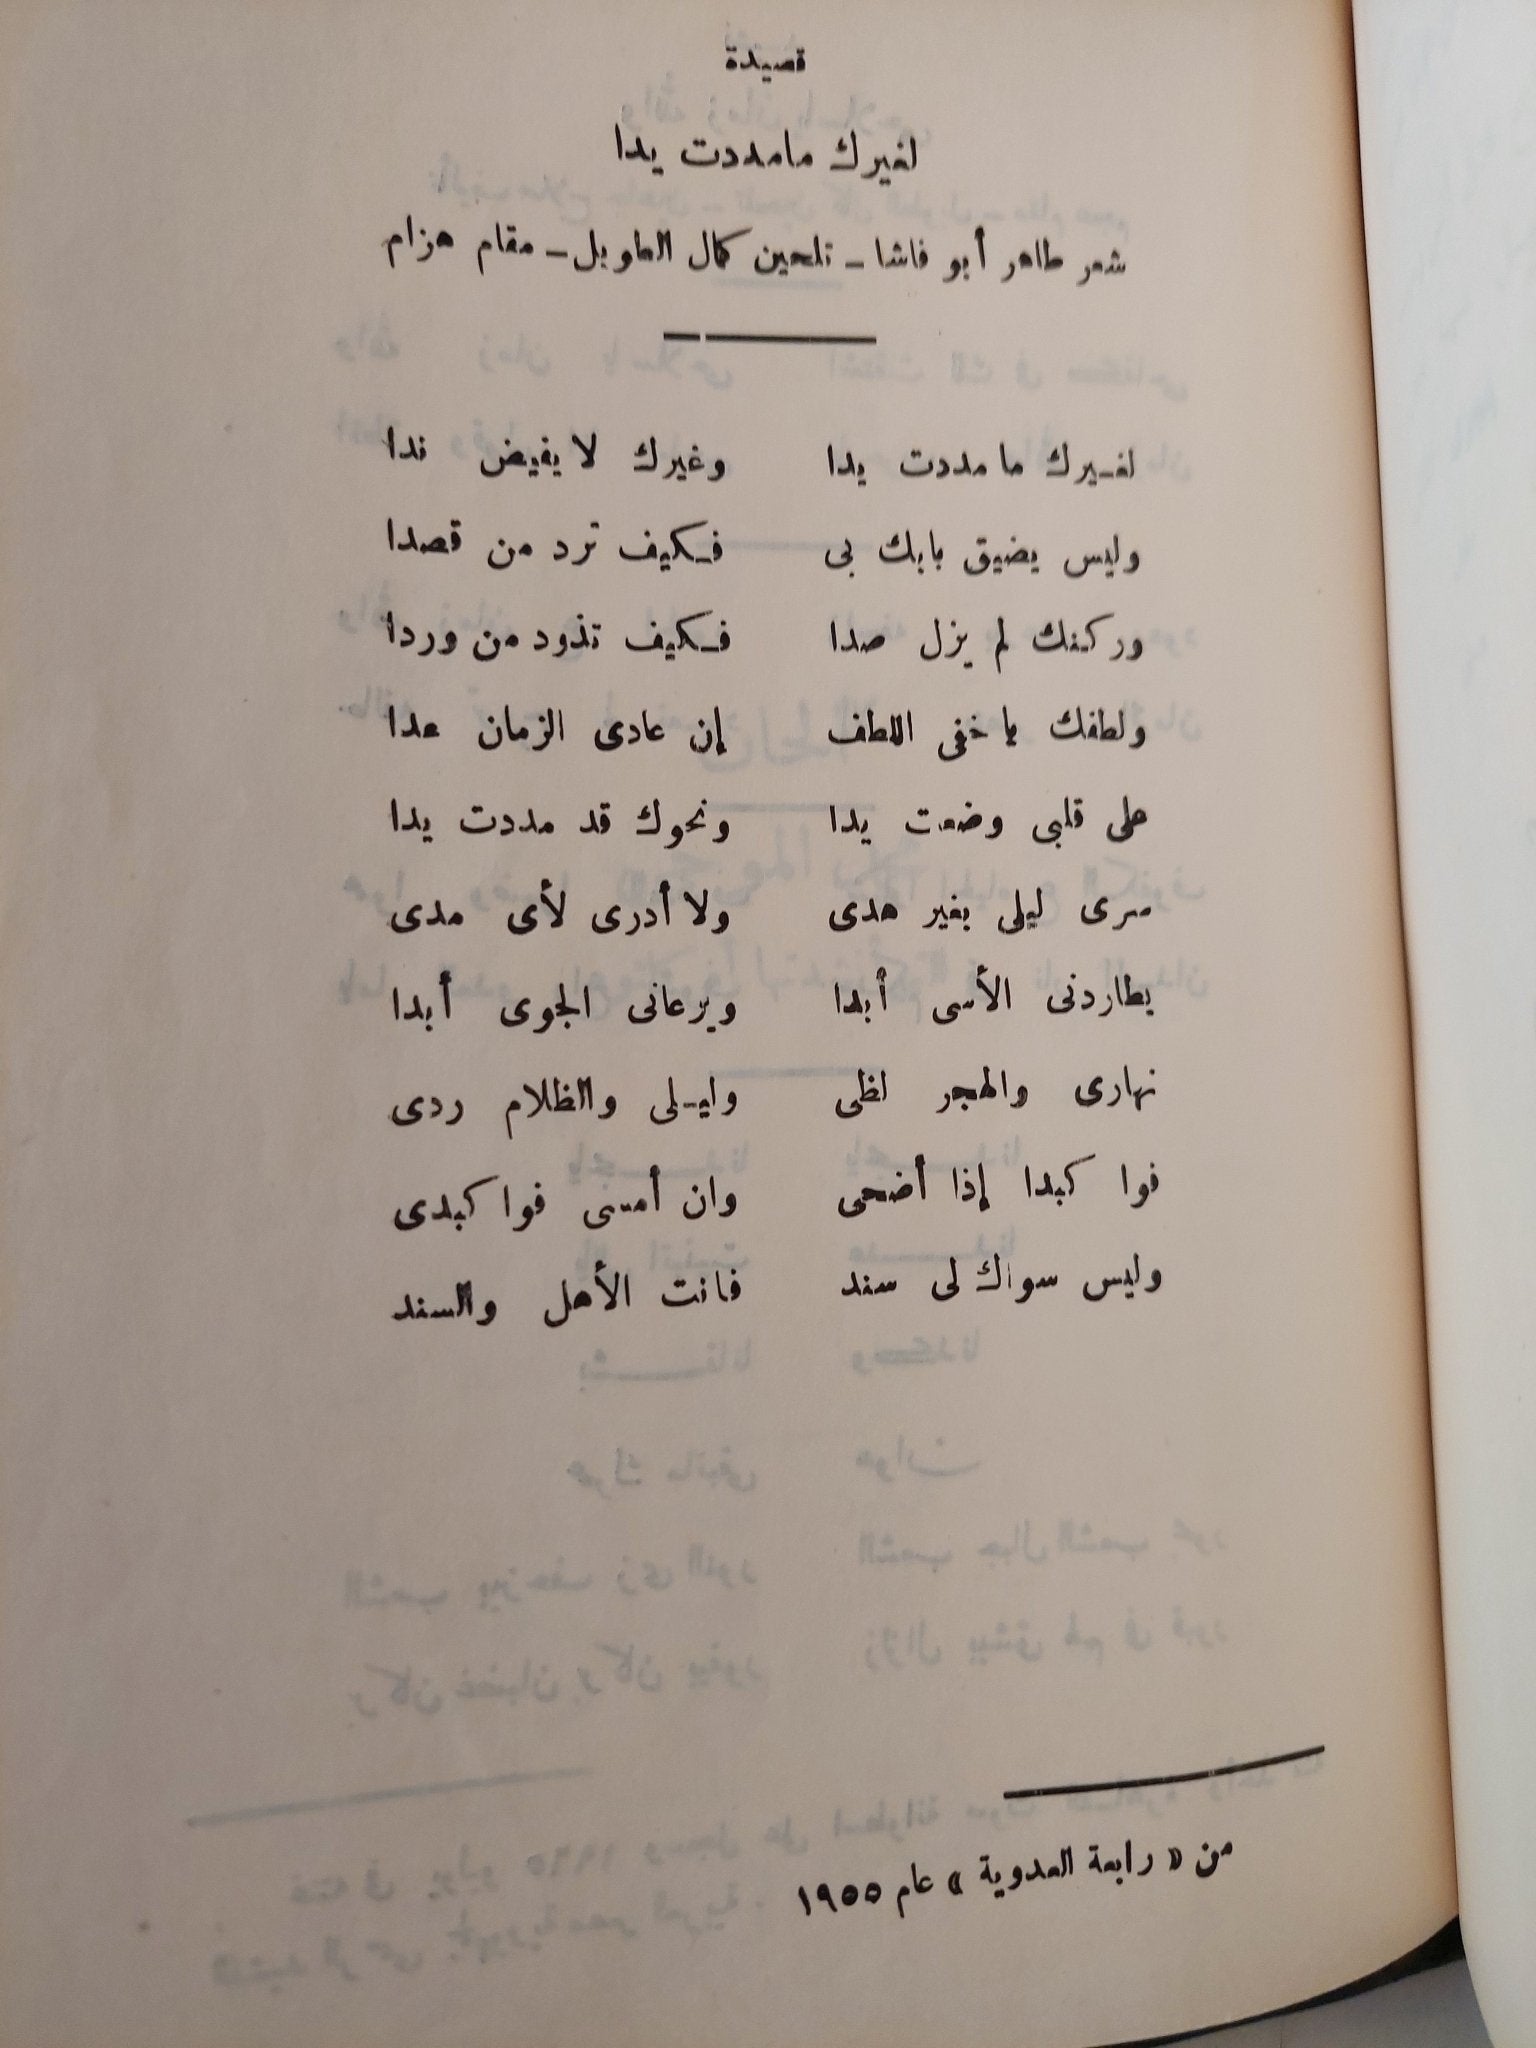 قصيدة
لغيرك مامددت يدا
شعر طاهر أبو فاشا – تلحين كمال الطويل – مقام هزام
لغيرك ما مددت يدا وغيرك لا يفيض ندا
وليس يضيق بابك بى فكيف ترد من قصدا
وركنك لم يزل صدا فكيف تذود من وردا
ولطفك يا خفى اللطف إن عادى الزمان عدا
على قلبى وضعت يدا ونحوك قد مددت يدا
سرى ليلى بغير هدى ولا أدرى لأى مدى
يطاردنى الأسى أبدا ويرعانى الجوى أبدا
نهارى والهجر لظى وليلى والظلام ردى
فوا كبدا إذا أضحى وان أمسى فوا كبدى
وليس سواك لى سند فانت الأهل والسند
من « رابعة العدوية » عام ١٩٥٥